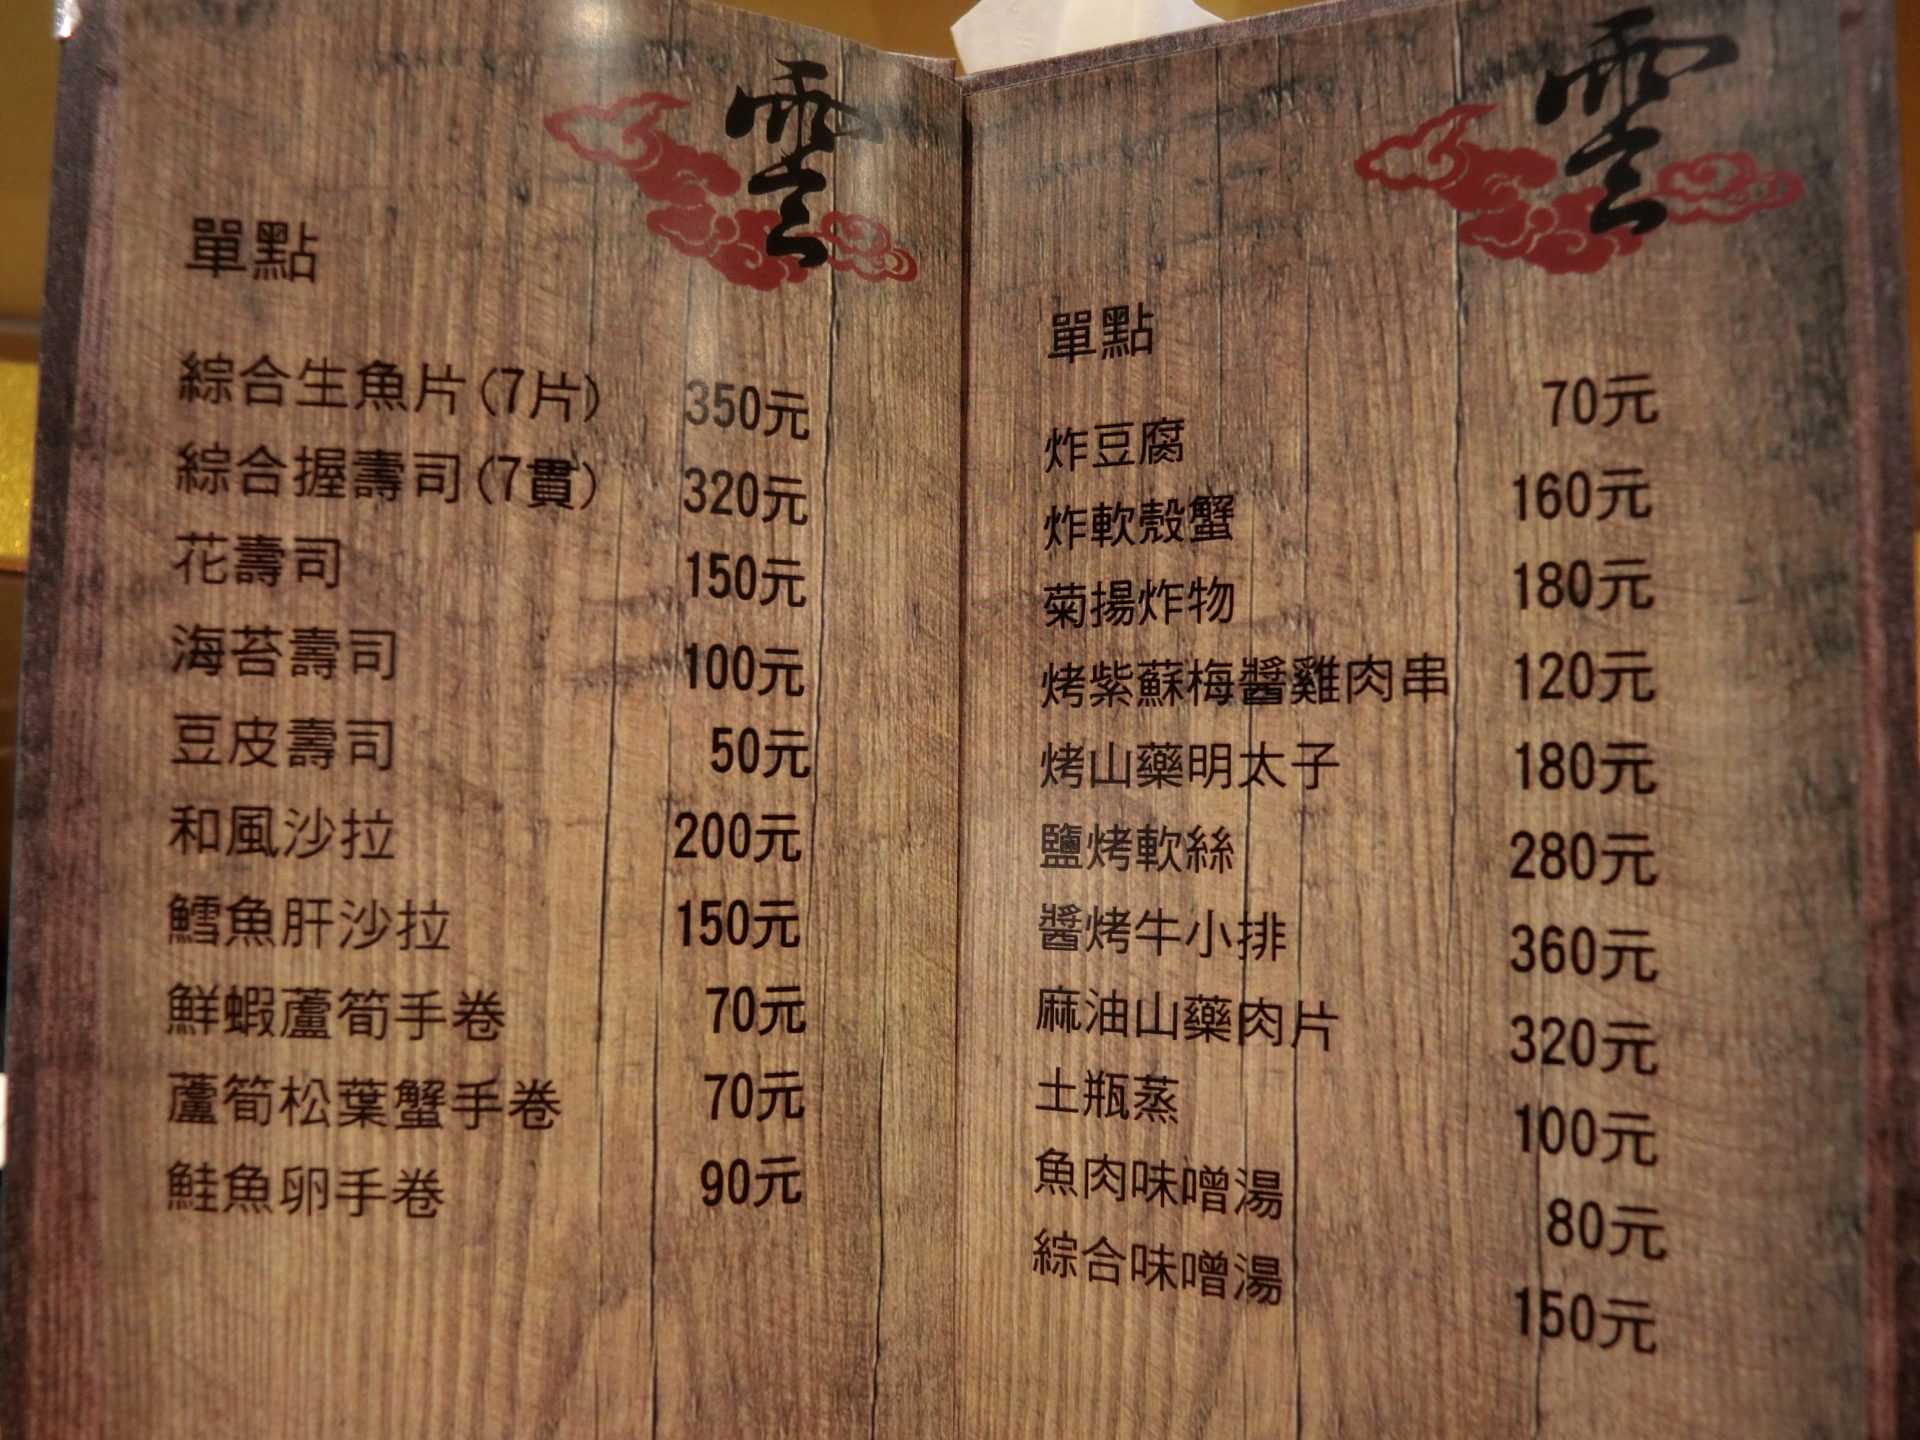 雲
單點
綜合生魚片(7片) 350元
綜合握壽司(7貫) 320元
花壽司 150元
海苔壽司 100元
豆皮壽司 50元
和風沙拉 200元
鱈魚肝沙拉 150元
鮮蝦蘆筍手卷 70元
蘆筍松葉蟹手卷 70元
鮭魚卵手卷 90元
雲
單點
炸豆腐 70元
炸軟殼蟹 160元
菊揚炸物 180元
烤紫蘇梅醬雞肉串 120元
烤山藥明太子 180元
鹽烤軟絲 280元
醬烤牛小排 360元
麻油山藥肉片 320元
土瓶蒸 100元
魚肉味噌湯 80元
綜合味噌湯 150元